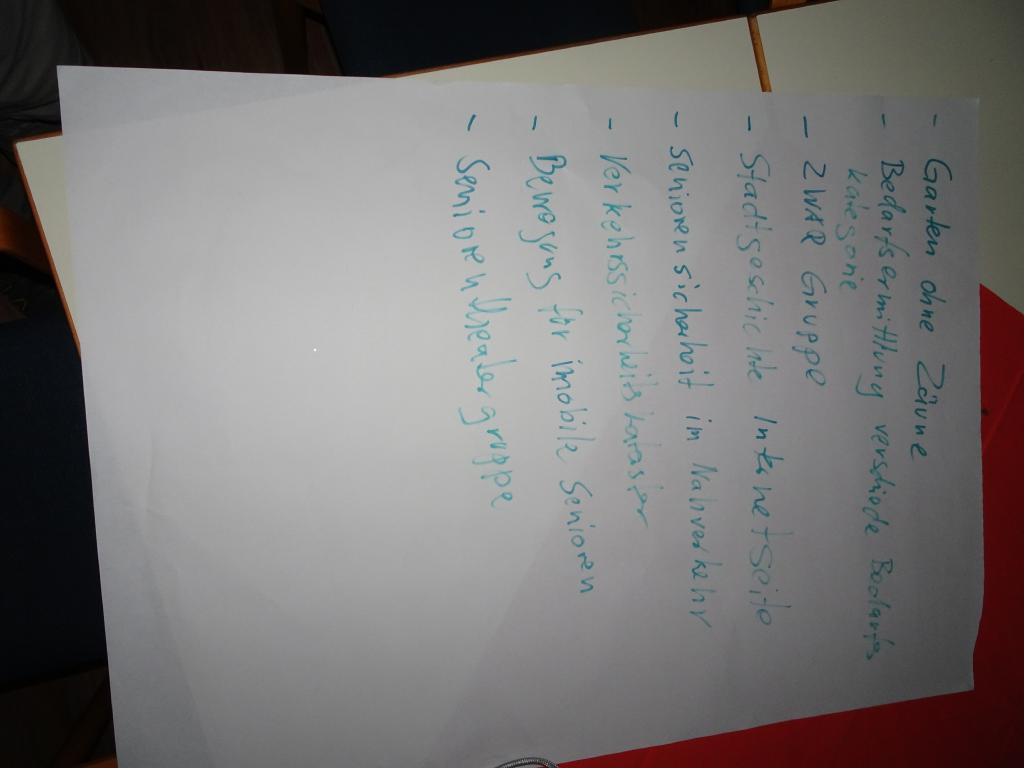 - Garten ohne Zäune
- Bedarfsermittlung verschiede Bedarfs
kategorie
- ZWAR Gruppe
- Stadtgeschichte Internetseite
- Seniorensicharheit im Nahverkehr
- Verkehrssicharheitskataster
- Bewegung für imobile Senioren
- Seniorentheatergruppe